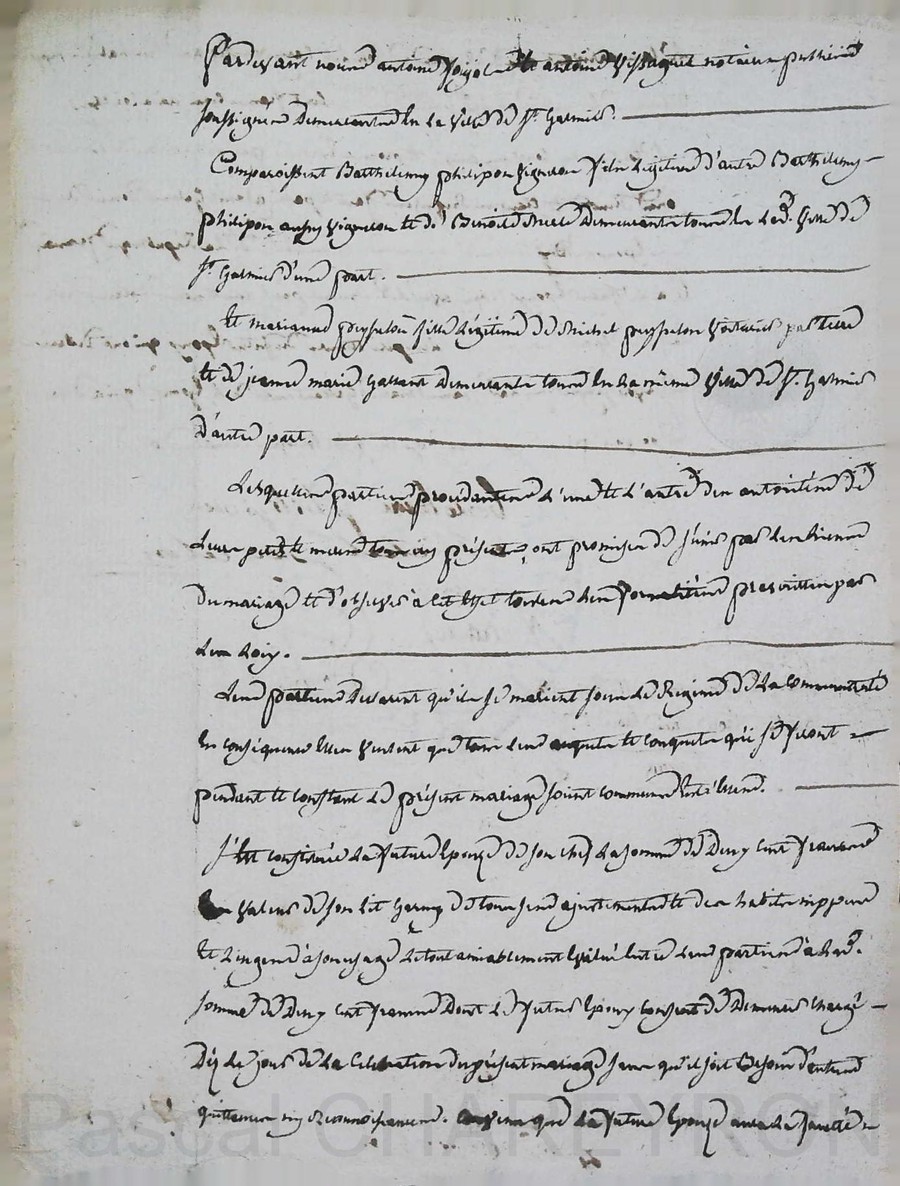 Pardevant nous antoine et antoine notaires publics
soussignés demeurants en la ville de St. Galmier.
Comparoissent Barthelemy philipon vigneron fils légitime d'autre Barthelemy
philipon aussy vigneron et de Benoite demeurants tous en lad. ville de
St. Galmier d'une part.
Et marianne peysselon fille légitime de michel peysselon voiturier par terre
et de jeanne marie demeurants tous en la même ville de St. Galmier
d'autre part.
Lesquelles parties procédantes l'une et l'autre des autorités de
leurs peres et meres présents, ont promis de s'unir par les liens
du mariage et d'observer à cet effet toutes les formalités prescrittes par
les loix.
Les parties declarent qu'ils se marient sous le Régime de la Communauté
en conséquence elles veulent que tous les acquets et conquets qu'ils feront
pendant et constant le présent mariage soient communs entr'elles.
S'est constituée la future Epouse de son chef la somme de Deux cent francs
valeur de son lit garny de tous ses ajustements et de ses habits nippes
et linges à son usage le tout amiablement évalué entre les parties à lad.
somme de Deux cent francs dont le futur Epoux consent de demeurer chargé
Dès le jour de la Celebration du présent mariage sans qu'il soit besoin d'autres
quittances ny Reconnoissances. que la future Epouse aura la faculté
Pascal CHAREYRON